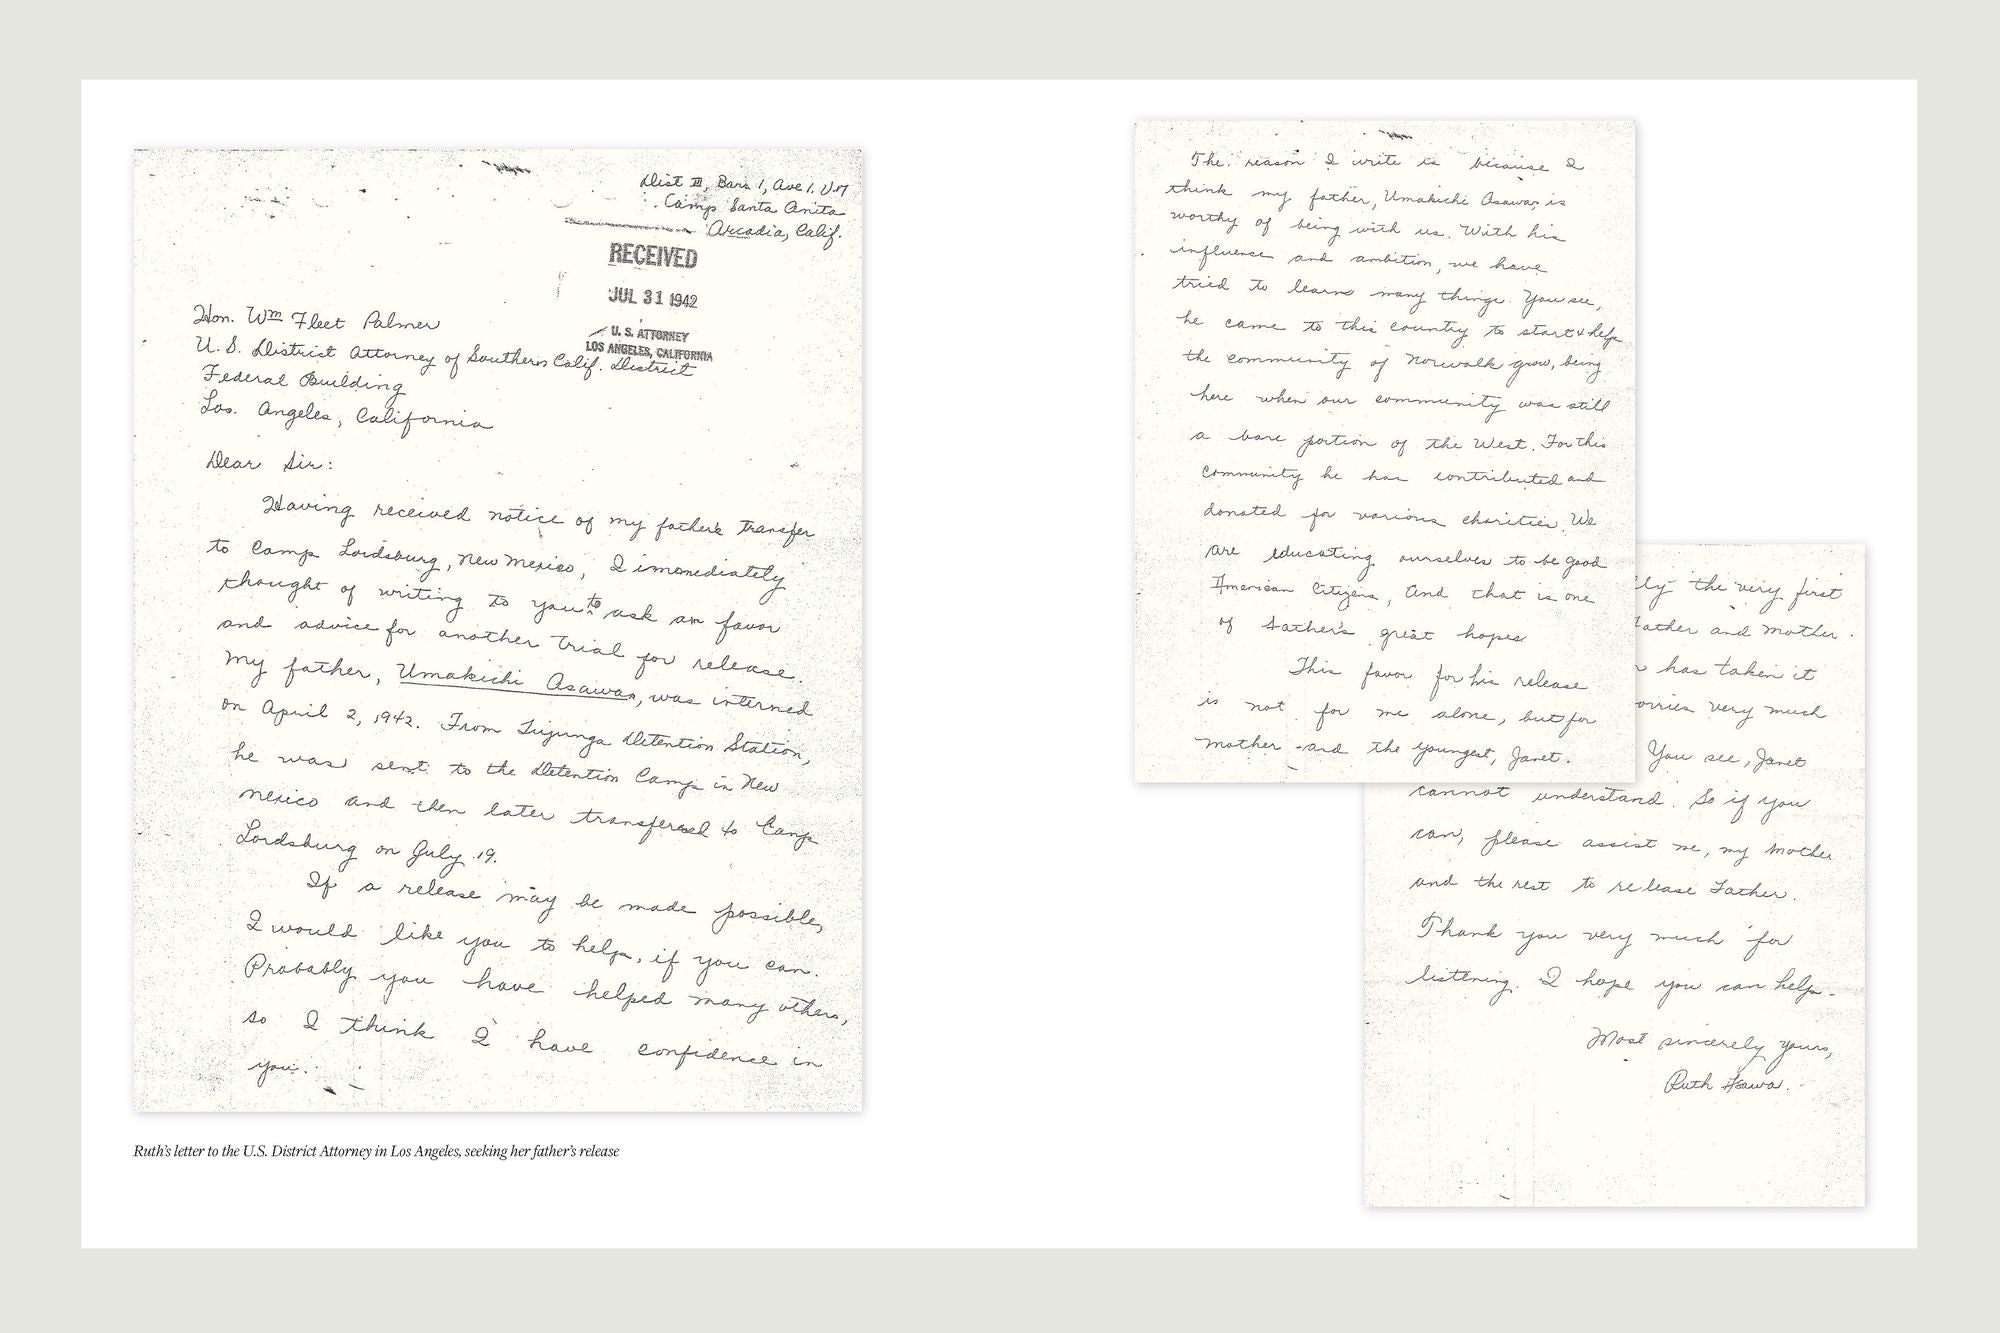 Dist III, Bars 1, Ave 1, U.7
Camp Santa Anita
Arcadia, Calif.
RECEIVED
JUL 31 1942
U. S. ATTORNEY
LOS ANGELES, CALIFORNIA
Hon. Wm Fleet Palmer
U. S. District Attorney of Southern Calif. District
Federal Building
Los. Angeles, California
Dear Sir:
Having received notice of my father's transfer
to Camp Lordsburg, New Mexico, I immediately
thought of writing to you to ask a favor
and advice for another trial for release.
My father, Umakichi Asawa, was interned
on April 2, 1942. From Tujunga Detention Station,
he was sent to the Detention Camp in New
Mexico and then later transfered to Camp
Lordsburg on July 19.
If a release may be made possible,
I would like you to help, if you can.
Probably you have helped many others,
so I think I have confidence in
you.
Ruth's letter to the U.S. District Attorney in Los Angeles, seeking her father's release
The reason I write is because I
think my father, Umakichi Asawa, is
worthy of being with us. With his
influence and ambition, we have
tried to learn many things. You see,
he came to this country to start & help
the community of Norwalk grow, being
here when our community was still
a bare portion of the West. For this
community he has contributed and
donated for various charities. We
are educating ourselves to be good
American Citizens, And that is one
of Father's great hopes.
This favor for his release
is not for me alone, but for
mother and the youngest, Janet.
ly the very first
Father and Mother.
has taken it
worries very much
You see, Janet
cannot understand. So if you
can, please assist me, my Mother
and the rest to release Father.
Thank you very much for
listening. I hope you can help.
Most sincerely yours,
Ruth Asawa.